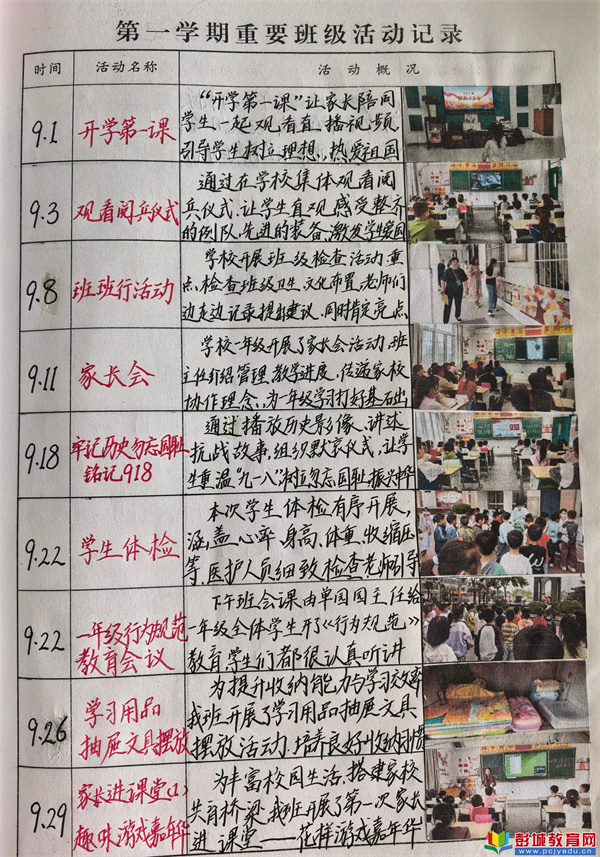 第一学期重要班级活动记录
时间 活动名称 活动概况
9.1 开学第一课
“开学第一课”让家长陪同
学生一起观看直播视频,
引导学生树立理想、热爱祖国
9.3 观看阅兵仪式
通过在学校集体观看阅
兵仪式,让学生直观感受整齐
的例队,先进的装备,激发学生爱国
9.8 班班行活动
学校开展班级检查活动,重
点检查班级卫生,文化布置,老师们
边走边记录提出建议,同时肯定亮点
9.11 家长会
学校一年级开展了家长会活动,班
主任介绍管理、教学进展,传递家校
协作理念,为一年级学习打好基础
9.18 牢记历史勿忘国耻
铭记918
通过播放历史影像、讲述
抗战故事,组织默哀仪式,让学
生重温“九一八”树立勿忘国耻振兴中华
9.22 学生体检
本次学生体检有序开展,
涵盖心率、身高、体重、收缩压
等,医护人员细致检查老师引导
9.22 一年级行为规范
教育会议
下午班会课由单园园主任给
一年级全体学生开了《行为规范》
教育,学生们都很认真听讲
9.26 学习用品
抽屉文具摆放
为提升收纳能力与学习效率
我班开展了学习用品抽屉文具
摆放活动,培养良好收纳习惯
9.29 家长进课堂(1)
趣味游戏嘉年华
为丰富校园生活,搭建家校
共育桥梁,我班开展了第一次家长
进课堂——花样游戏嘉年华
彭城教育网
www.pcjyedu.cn